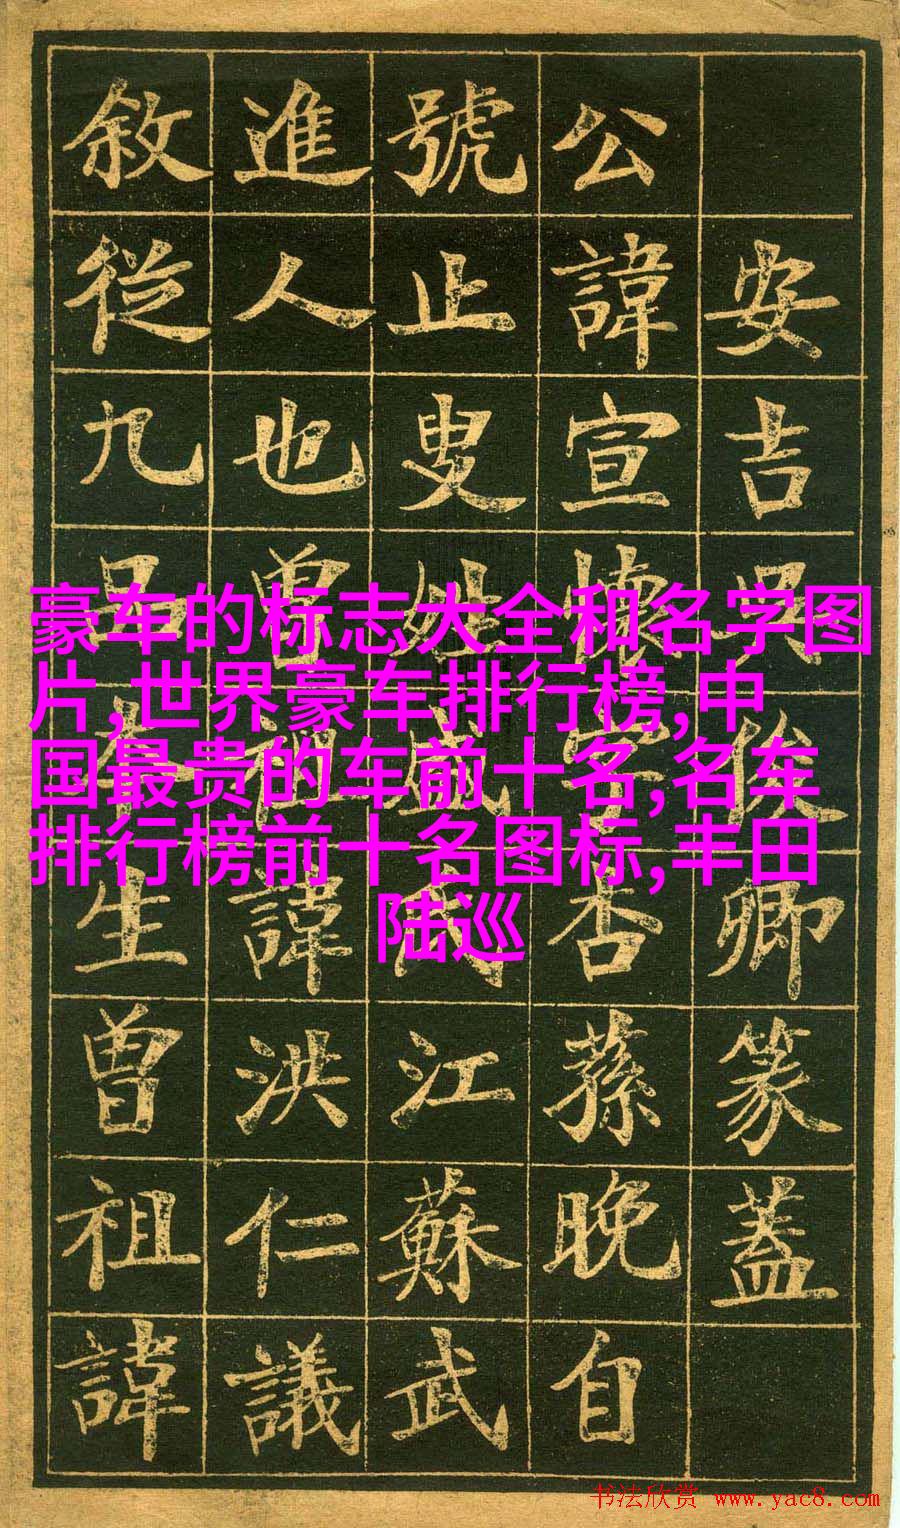 安吉吳俊卿篆蓋
公諱宣懷字杏蓀晚自
號止叟姓盛氏江蘇武
進人也曾祖諱洪仁議
敘從九品本生曾祖諱
豪车的标志大全和名字图
片,世界豪车排行榜,中
国最贵的车前十名,名车
排行榜前十名图标,丰田
陆巡
书法欣赏 www.yac8.com